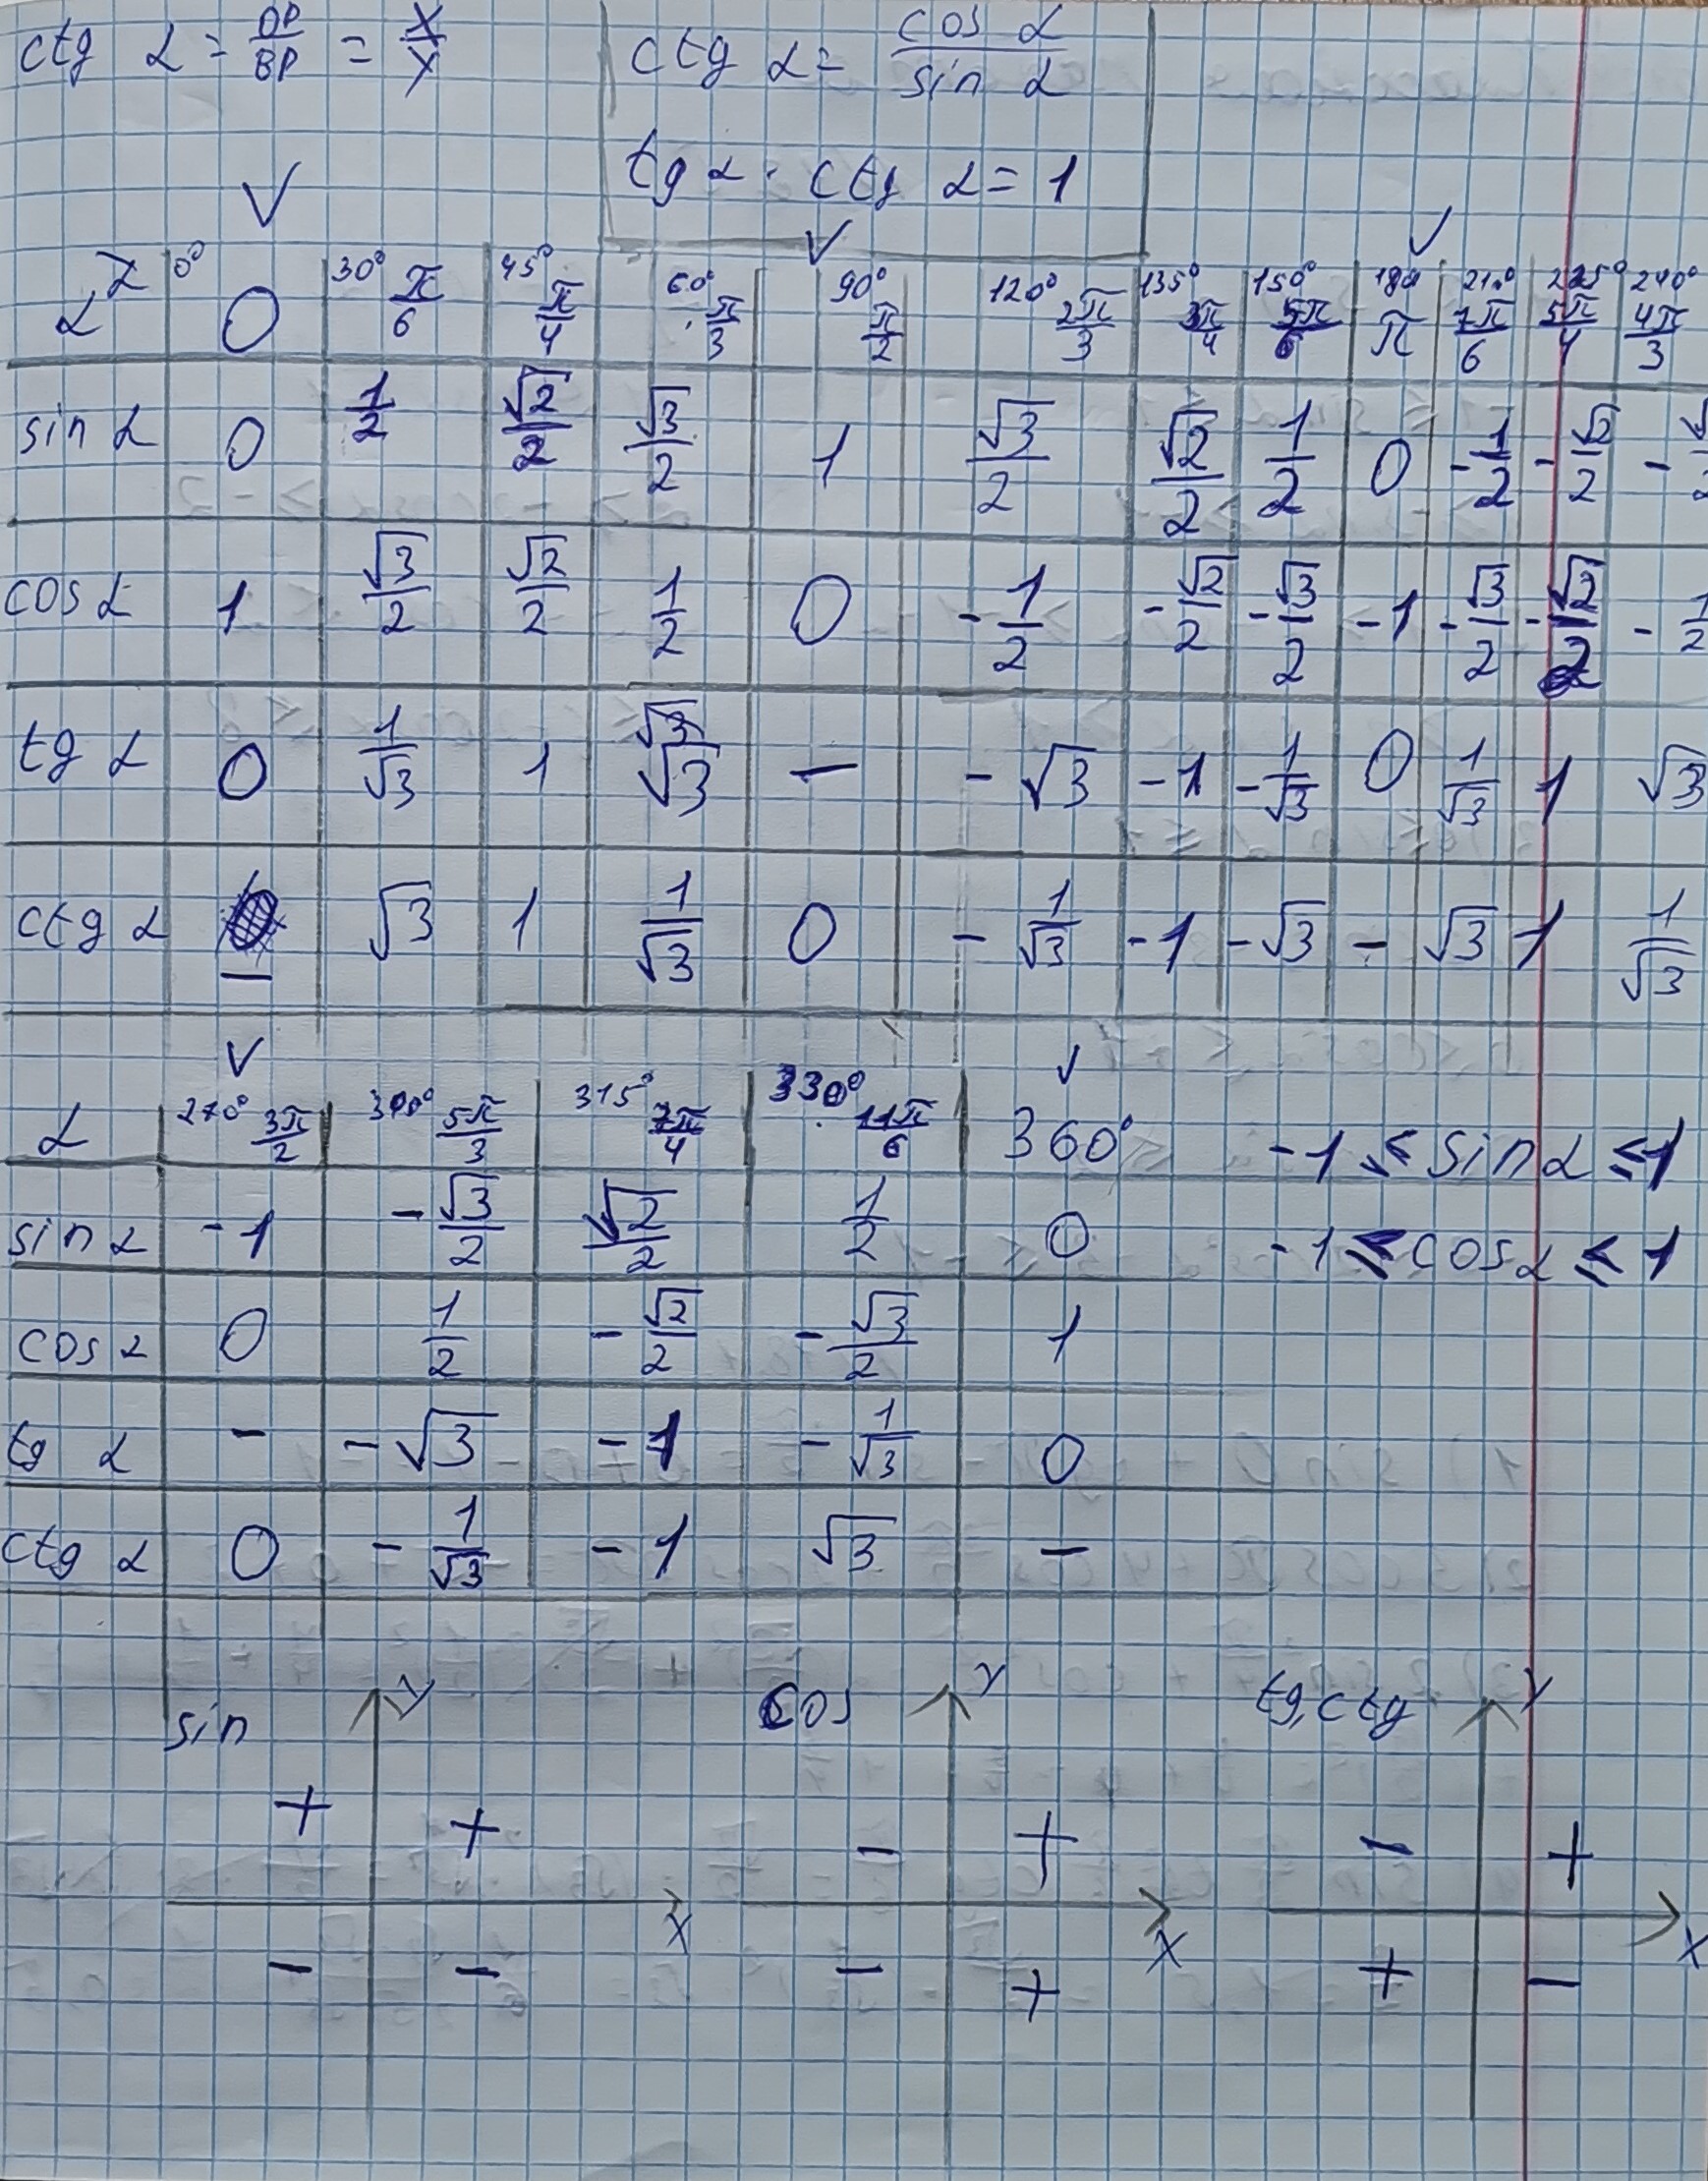 ctg α = OP/BP = x/y    ctg α = cos α/sin α
tg α · ctg α = 1
V V V
α | 0° 0 | 30° π/6 | 45° π/4 | 60° π/3 | 90° π/2 | 120° 2π/3 | 135° 3π/4 | 150° 5π/6 | 180 π | 210° 7π/6 | 225° 5π/4 | 240° 4π/3
sin α | 0 | 1/2 | √2/2 | √3/2 | 1 | √3/2 | √2/2 | 1/2 | 0 | -1/2 | -√2/2 | -√
cos α | 1 | √3/2 | √2/2 | 1/2 | 0 | -1/2 | -√2/2 | -√3/2 | -1 | -√3/2 | -√2/2 | -1/2
tg α | 0 | 1/√3 | 1 | √3 | — | -√3 | -1 | -1/√3 | 0 | 1/√3 | 1 | √3
ctg α | — | √3 | 1 | 1/√3 | 0 | -1/√3 | -1 | -√3 | — | √3 | 1 | 1/√3
V V
α | 270° 3π/2 | 300° 5π/3 | 315° 7π/4 | 330° 11π/6 | 360° -1 ≤ sin α ≤ 1
sin α | -1 | -√3/2 | √2/2 | 1/2 | 0 -1 ≤ cos α ≤ 1
cos α | 0 | 1/2 | -√2/2 | -√3/2 | 1
tg α | - | -√3 | -1 | -1/√3 | 0
ctg α | 0 | -1/√3 | -1 | √3 | —
sin y cos y tg, ctg y
+ + - + - +
x x x
- - - + + -